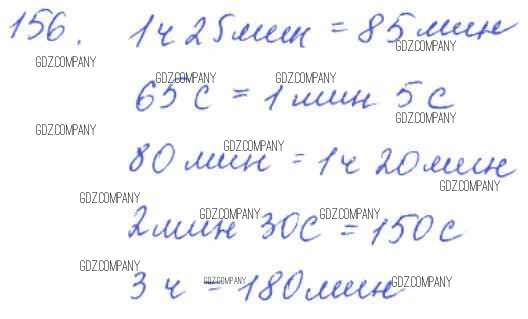 156. 1ч 25мин = 85мин
65с = 1мин 5с
80мин = 1ч 20мин
2мин 30с = 150с
3ч = 180мин
GDZ.COMPANY
GDZ.COMPANY
GDZ.COMPANY
GDZ.COMPANY
GDZ.COMPANY
GDZ.COMPANY
GDZ.COMPANY
GDZ.COMPANY
GDZ.COMPANY
GDZ.COMPANY
GDZ.COMPANY
GDZ.COMPANY
GDZ.COMPANY
GDZ.COMPANY